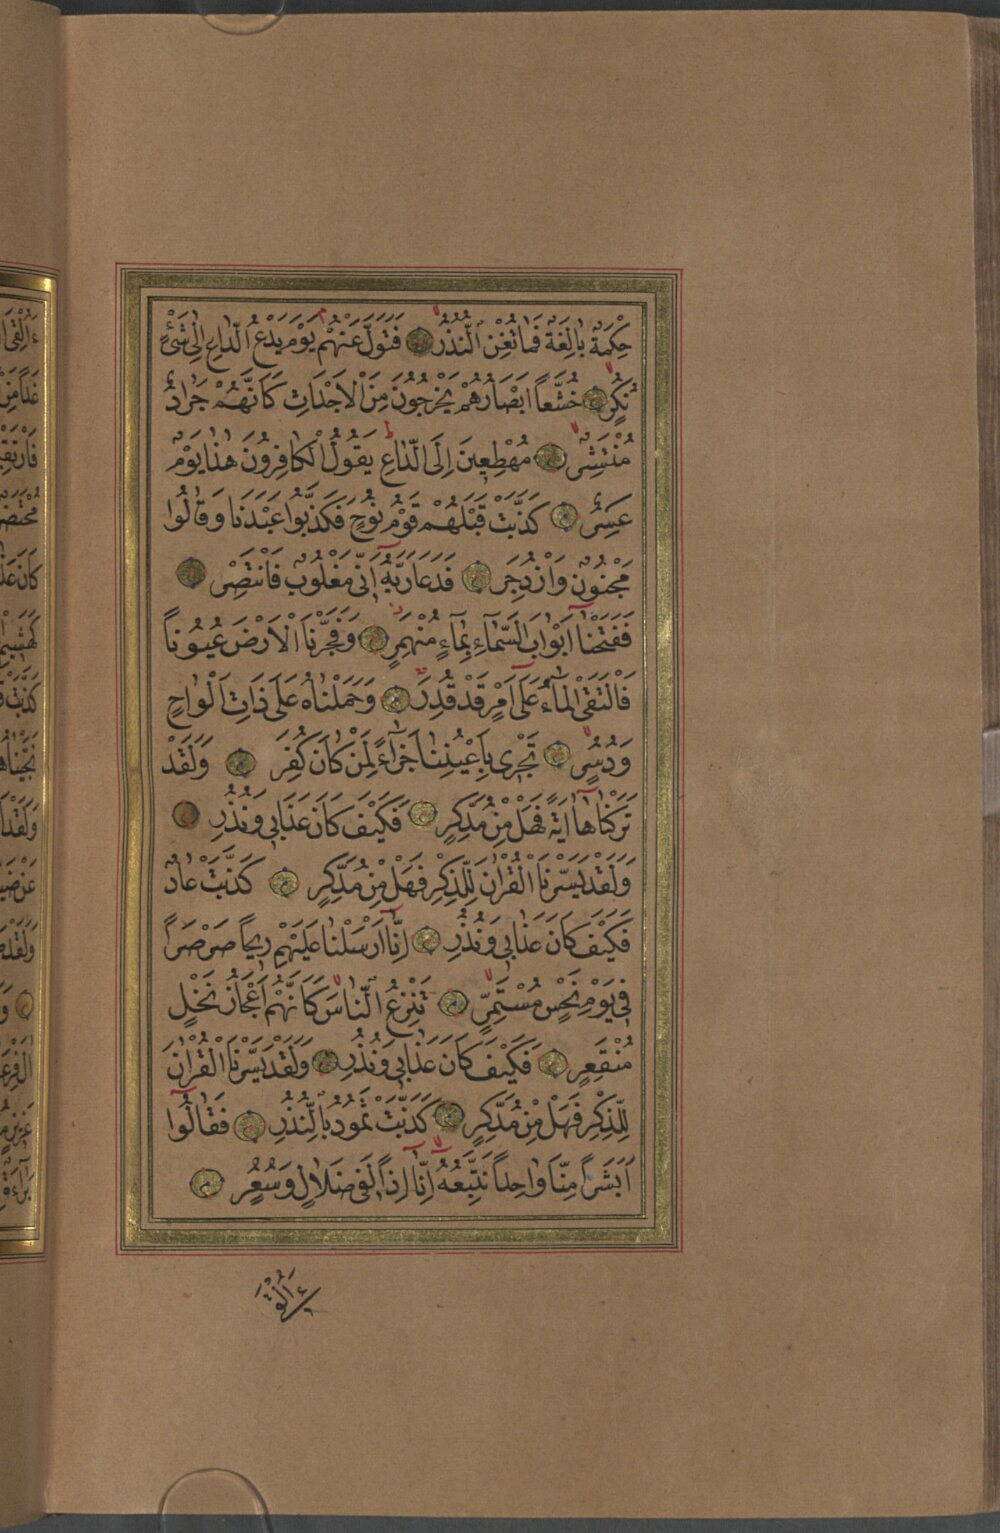 حِكْمَةٌ بَالِغَةٌ فَمَا تُغْنِ النُّذُرُ ۝ فَتَوَلَّ عَنْهُمْ يَوْمَ يَدْعُ الدَّاعِ اِلٰى شَيْءٍ
نُكُرٍ ۝ خُشَّعاً اَبْصَارُهُمْ يَخْرُجُونَ مِنَ الْاَجْدَاثِ كَاَنَّهُمْ جَرَادٌ
مُنْتَشِرٌ ۝ مُهْطِعِينَ اِلَى الدَّاعِ يَقُولُ الْكَافِرُونَ هٰذَا يَوْمٌ
عَسِرٌ ۝ كَذَّبَتْ قَبْلَهُمْ قَوْمُ نُوحٍ فَكَذَّبُوا عَبْدَنَا وَقَالُوا
مَجْنُونٌ وَازْدُجِرَ ۝ فَدَعَا رَبَّهُ اَنِّي مَغْلُوبٌ فَانْتَصِرْ ۝
فَفَتَحْنَا اَبْوَابَ السَّمَاءِ بِمَاءٍ مُنْهَمِرٍ ۝ وَفَجَّرْنَا الْاَرْضَ عُيُوناً
فَالْتَقَى الْمَاءُ عَلٰى اَمْرٍ قَدْ قُدِرَ ۝ وَحَمَلْنَاهُ عَلٰى ذَاتِ اَلْوَاحٍ
وَدُسُرٍ ۝ تَجْرِي بِاَعْيُنِنَا جَزَاءً لِمَنْ كَانَ كُفِرَ ۝ وَلَقَدْ
تَرَكْنَاهَا اٰيَةً فَهَلْ مِنْ مُدَّكِرٍ ۝ فَكَيْفَ كَانَ عَذَابِي وَنُذُرِ ۝
وَلَقَدْ يَسَّرْنَا الْقُرْاٰنَ لِلذِّكْرِ فَهَلْ مِنْ مُدَّكِرٍ ۝ كَذَّبَتْ عَادٌ
فَكَيْفَ كَانَ عَذَابِي وَنُذُرِ ۝ اِنَّا اَرْسَلْنَا عَلَيْهِمْ رِيحاً صَرْصَراً
فِي يَوْمِ نَحْسٍ مُسْتَمِرٍّ ۝ تَنْزِعُ النَّاسَ كَاَنَّهُمْ اَعْجَازُ نَخْلٍ
مُنْقَعِرٍ ۝ فَكَيْفَ كَانَ عَذَابِي وَنُذُرِ ۝ وَلَقَدْ يَسَّرْنَا الْقُرْاٰنَ
لِلذِّكْرِ فَهَلْ مِنْ مُدَّكِرٍ ۝ كَذَّبَتْ ثَمُودُ بِالنُّذُرِ ۝ فَقَالُوا
اَبَشَراً مِنَّا وَاحِداً نَتَّبِعُهُ اِنَّا اِذاً لَفِي ضَلَالٍ وَسُعُرٍ ۝
ءَاُلْقِيَ